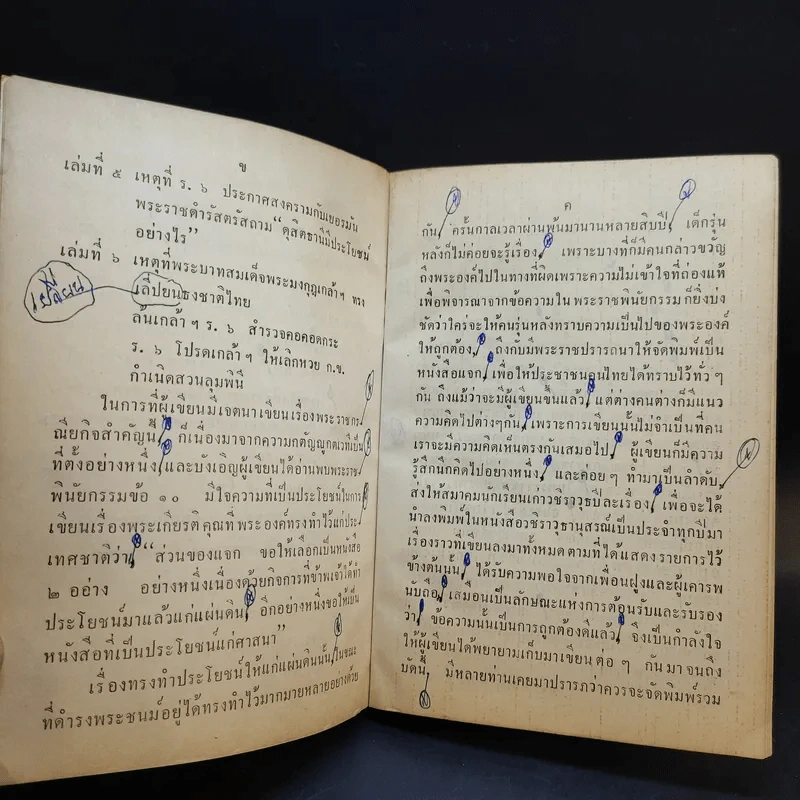 ข
เล่มที่ ๕ เหตุที่ ร. ๖ ประกาศสงครามกับเยอรมัน
พระราชดำรัสตรัสถาม “ดุสิตธานีมีประโยชน์
อย่างไร”
เล่มที่ ๖ เหตุที่พระบาทสมเด็จพระมงกุฎเกล้าฯ ทรง
เปลี่ยน
เลี่ปยนธงชาติไทย
ล้นเกล้าฯ ร. ๖ สำรวจคอคอดกระ
ร. ๖ โปรดเกล้าฯ ให้เลิกหวย ก.ข.
กำเนิดสวนลุมพินี
ในการที่ผู้เขียนมีเจตนาเขียนเรื่องพระราชกร
ณียกิจสำคัญนี้ ก็เนื่องมาจากความกตัญญูกตเวทีเป็น
ที่ตั้งอย่างหนึ่ง และบังเอิญผู้เขียนได้อ่านพบพระราช
พินัยกรรมข้อ ๑๐ มีใจความที่เป็นประโยชน์ในการ
เขียนเรื่องพระเกียรติคุณที่พระองค์ทรงทำไว้แก่ประ
เทศชาติว่า “ส่วนของแจก ขอให้เลือกเป็นหนังสือ
๒ อย่าง อย่างหนึ่งเนื่องด้วยกิจการที่ข้าพเจ้าได้ทำ
ประโยชน์มาแล้วแก่แผ่นดิน อีกอย่างหนึ่งขอให้เป็น
หนังสือที่เป็นประโยชน์แก่ศาสนา”
เรื่องทรงทำประโยชน์ให้แก่แผ่นดินนั้น ในขณะ
ที่ดำรงพระชนม์อยู่ได้ทรงทำไว้มากมายหลายอย่างด้วย
ค
กัน ครั้นกาลเวลาผ่านพ้นมานานหลายสิบปี เด็กรุ่น
หลังก็ไม่ค่อยจะรู้เรื่อง เพราะบางทีก็มีคนกล่าวขวัญ
ถึงพระองค์ไปในทางที่ผิดเพราะความไม่เข้าใจที่ถ่องแท้
เพื่อพิจารณาจากข้อความใน พระราชพินัยกรรม ก็ยิ่งบ่ง
ชัดว่าใคร่จะให้คนรุ่นหลังทราบความเป็นไปของพระองค์
ให้ถูกต้อง ถึงกับมีพระราชปรารถนาให้จัดพิมพ์เป็น
หนังสือแจก เพื่อให้ประชาชนคนไทยได้ทราบไว้ทั่ว ๆ
กัน ถึงแม้ว่าจะมีผู้เขียนขึ้นแล้ว แต่ต่างคนต่างก็มีแนว
ความคิดไปต่างๆกัน เพราะการเขียนนั้นไม่จำเป็นที่คน
เราจะมีความคิดเห็นตรงกันเสมอไป ผู้เขียนก็มีความ
รู้สึกนึกคิดไปอย่างหนึ่ง และค่อยๆ ทำมาเป็นลำดับ
ส่งให้สมาคมนักเรียนเก่าวชิราวุธปีละเรื่อง เพื่อจะได้
นำลงพิมพ์ในหนังสือวชิราวุธานุสรณ์เป็นประจำทุกปีมา
เรื่องราวที่เขียนลงมาทั้งหมด ตามที่ได้แสดงรายการไว้
ข้างต้นนั้น ได้รับความพอใจจากเพื่อนฝูงและผู้เคารพ
นับถือ เสมือนเป็นลักษณะแห่งการต้อนรับและรับรอง
ว่า ข้อความนั้นเป็นการถูกต้องดีแล้ว จึงเป็นกำลังใจ
ให้ผู้เขียนได้พยายามเก็บมาเขียน ต่อ ๆ กันมา จนถึง
บัดนี้ มีหลายท่านเคยมาปรารภว่าควรจะจัดพิมพ์รวม